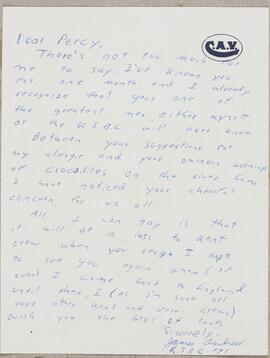 Dear Percy,
C.A.V.
There's not too much for
me to say. I've known you
for one month and I already
recognize that your one of
the greatest men either myself
or the K.S.B.C will ever know
Between your suggestions for
my alergie and your ominous warning
of crocadiles on the river
I have noticed your cheerful
concern for us all
All I can say is that
it will be a loss to Kent
crew when you resign I hope
to see you again when (if
ever) I come back to England.
until then, I (as i'm sure all
your other Kent and crews)
wish you the best of luck
Sincerely-
James
K.S.B.C